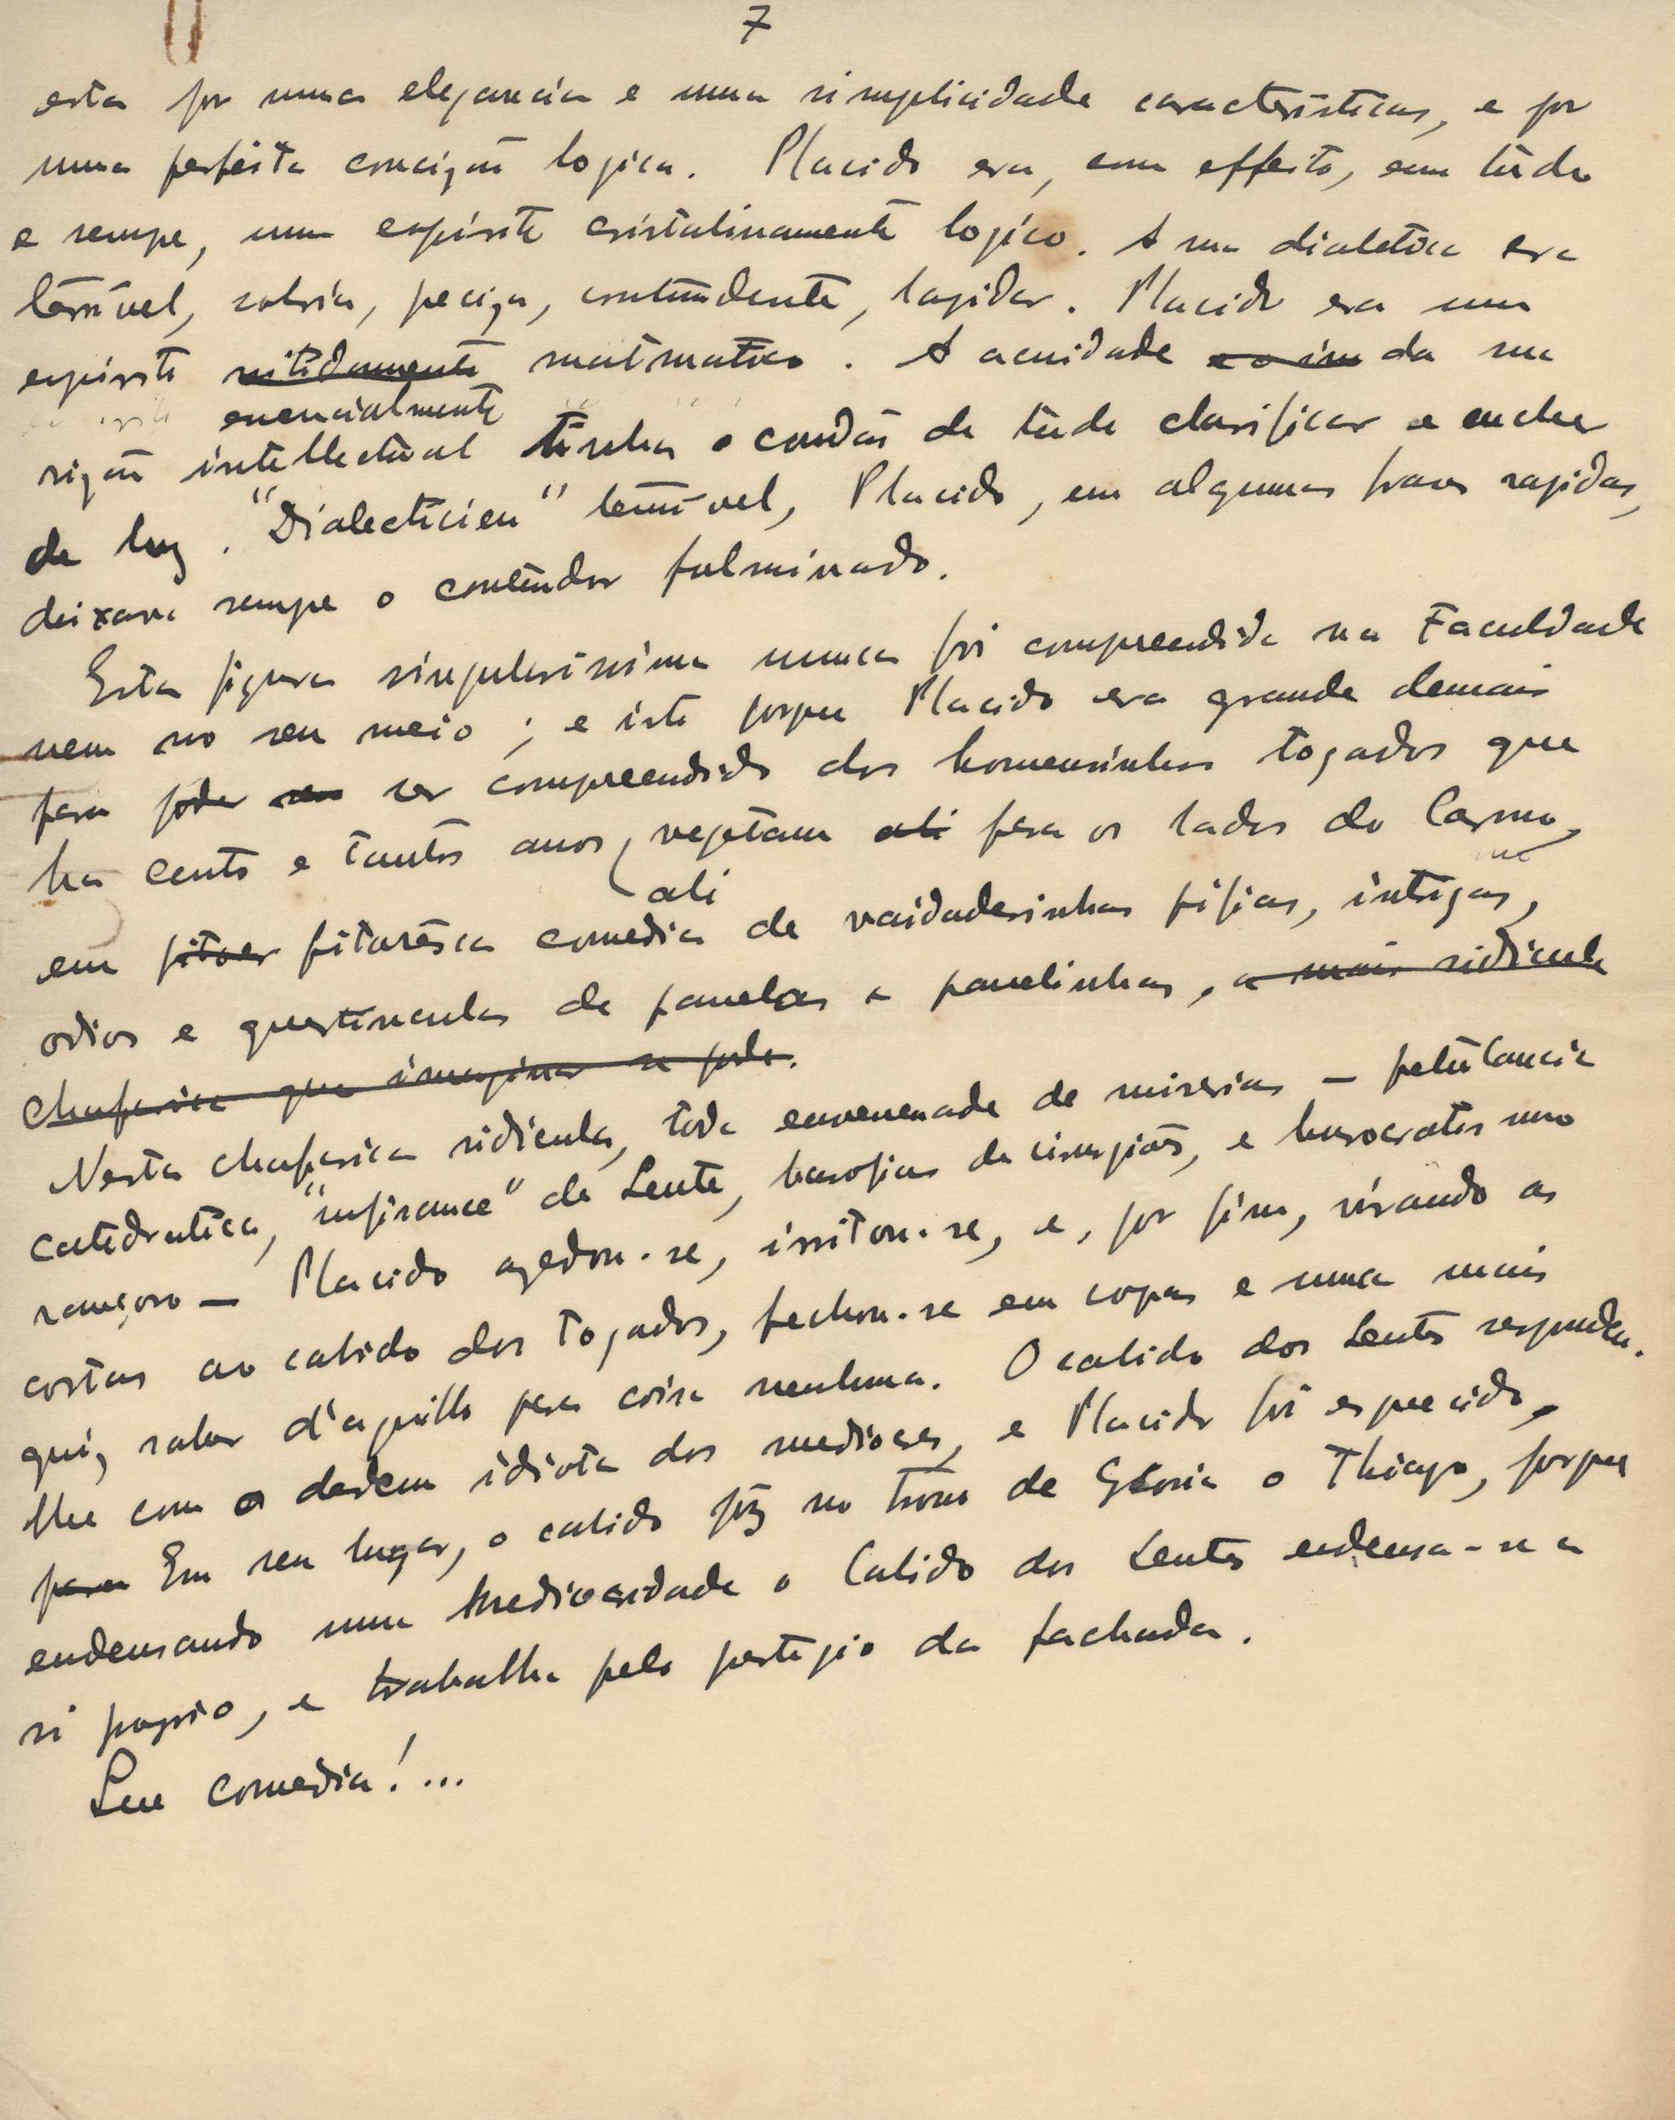 7
esta por uma elegancia e uma simplicidade caracteristicas, e por
uma perfeita concizão logica. Placido era, com effeito, em túdo
e sempre, um espirito cristalinamente logico. A sua dialetica era
temivel, sobria, preciza, contundente, lapidar. Placido era um
espirito nitidamente matmatico. A acuidade da sua
essencialmente
vizão intellectual tinha o condão de túdo clarificar e encher
de luz. "Dialecticien" temivel, Placido, em algumas frases rapidas,
deixava sempre o contendor fulminado.
Esta figura singularissima nunca foi compreendida na Faculdade
nem no seu meio; e isto porque Placido era grande demais
para poder ser compreendido dos homensinhos togados que
ha cento e tantos anos, vegetam ali para os lados do Carmo,
ali
em pitoresca comedia de vaidadesinhas pifias, intrigas,
odios e questiunculas de panelas e panelinhas, a mais ridicula
chafarica que imaginar se pode.
Nesta chafarica ridicula, toda envenenada de miserias – petulancia
catedratica, "suffisance" de Lente, basofias de cirurgiões, e burocratismo
rançoso – Placido azedou-se, irritou-se, e, por fim, virando as
costas ao cabido dos togados, fechou-se em copas e nunca mais
quiz saber d'aquillo para coisa nenhuma. O cabido dos Lentes respondeu-
lhe com o desdem idiota dos mediocres, e Placido foi esquecido.
para Em seu lugar, o cabido pôz no trono de Gloria o Thiago, porque
endeusando uma mediocridade o Cabido dos Lentes endeusa-se a
si proprio, e trabalha pelo prestigio da fachada.
Sua comedia!...